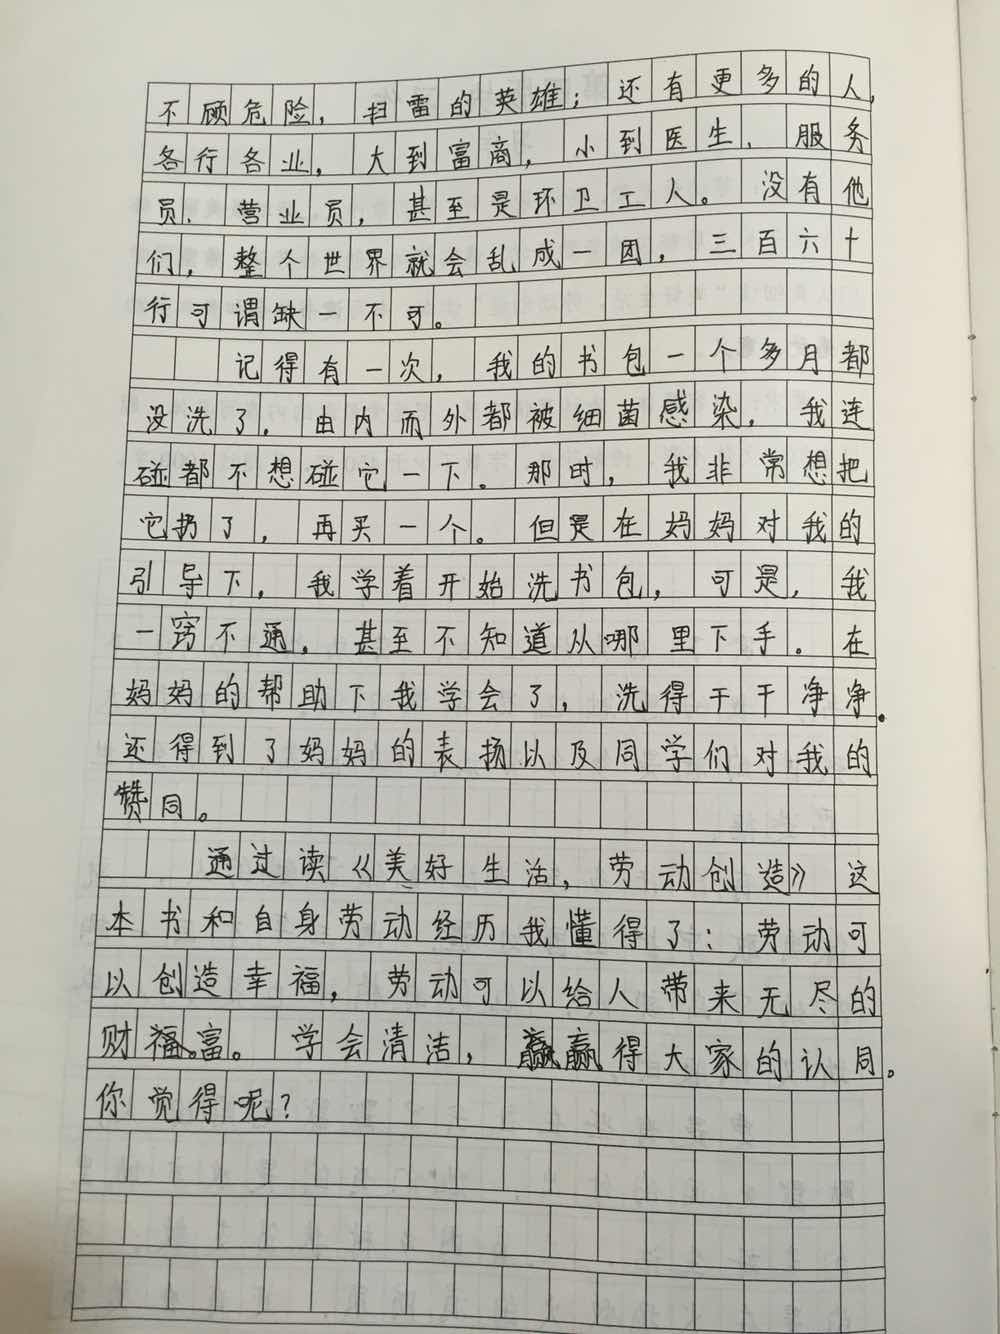 不顾危险，扫雷的英雄；还有更多的人，
各行各业，大到富商，小到医生、服务
员、营业员，甚至是环卫工人。没有他
们，整个世界就会乱成一团，三百六十
行可谓缺一不可。
记得有一次，我的书包一个多月都
没洗了，由内而外都被细菌感染，我连
碰都不想碰它一下。那时，我非常想把
它扔了，再买一个。但是在妈妈对我的
引导下，我学着开始洗书包，可是，我
一窍不通，甚至不知道从哪里下手。在
妈妈的帮助下我学会了，洗得干干净净。
还得到了妈妈的表扬以及同学们对我的
赞同。
通过读《美好生活，劳动创造》这
本书和自身劳动经历我懂得了：劳动可
以创造幸福，劳动可以给人带来无尽的
财富。学会清洁，赢得大家的认同。
你觉得呢？